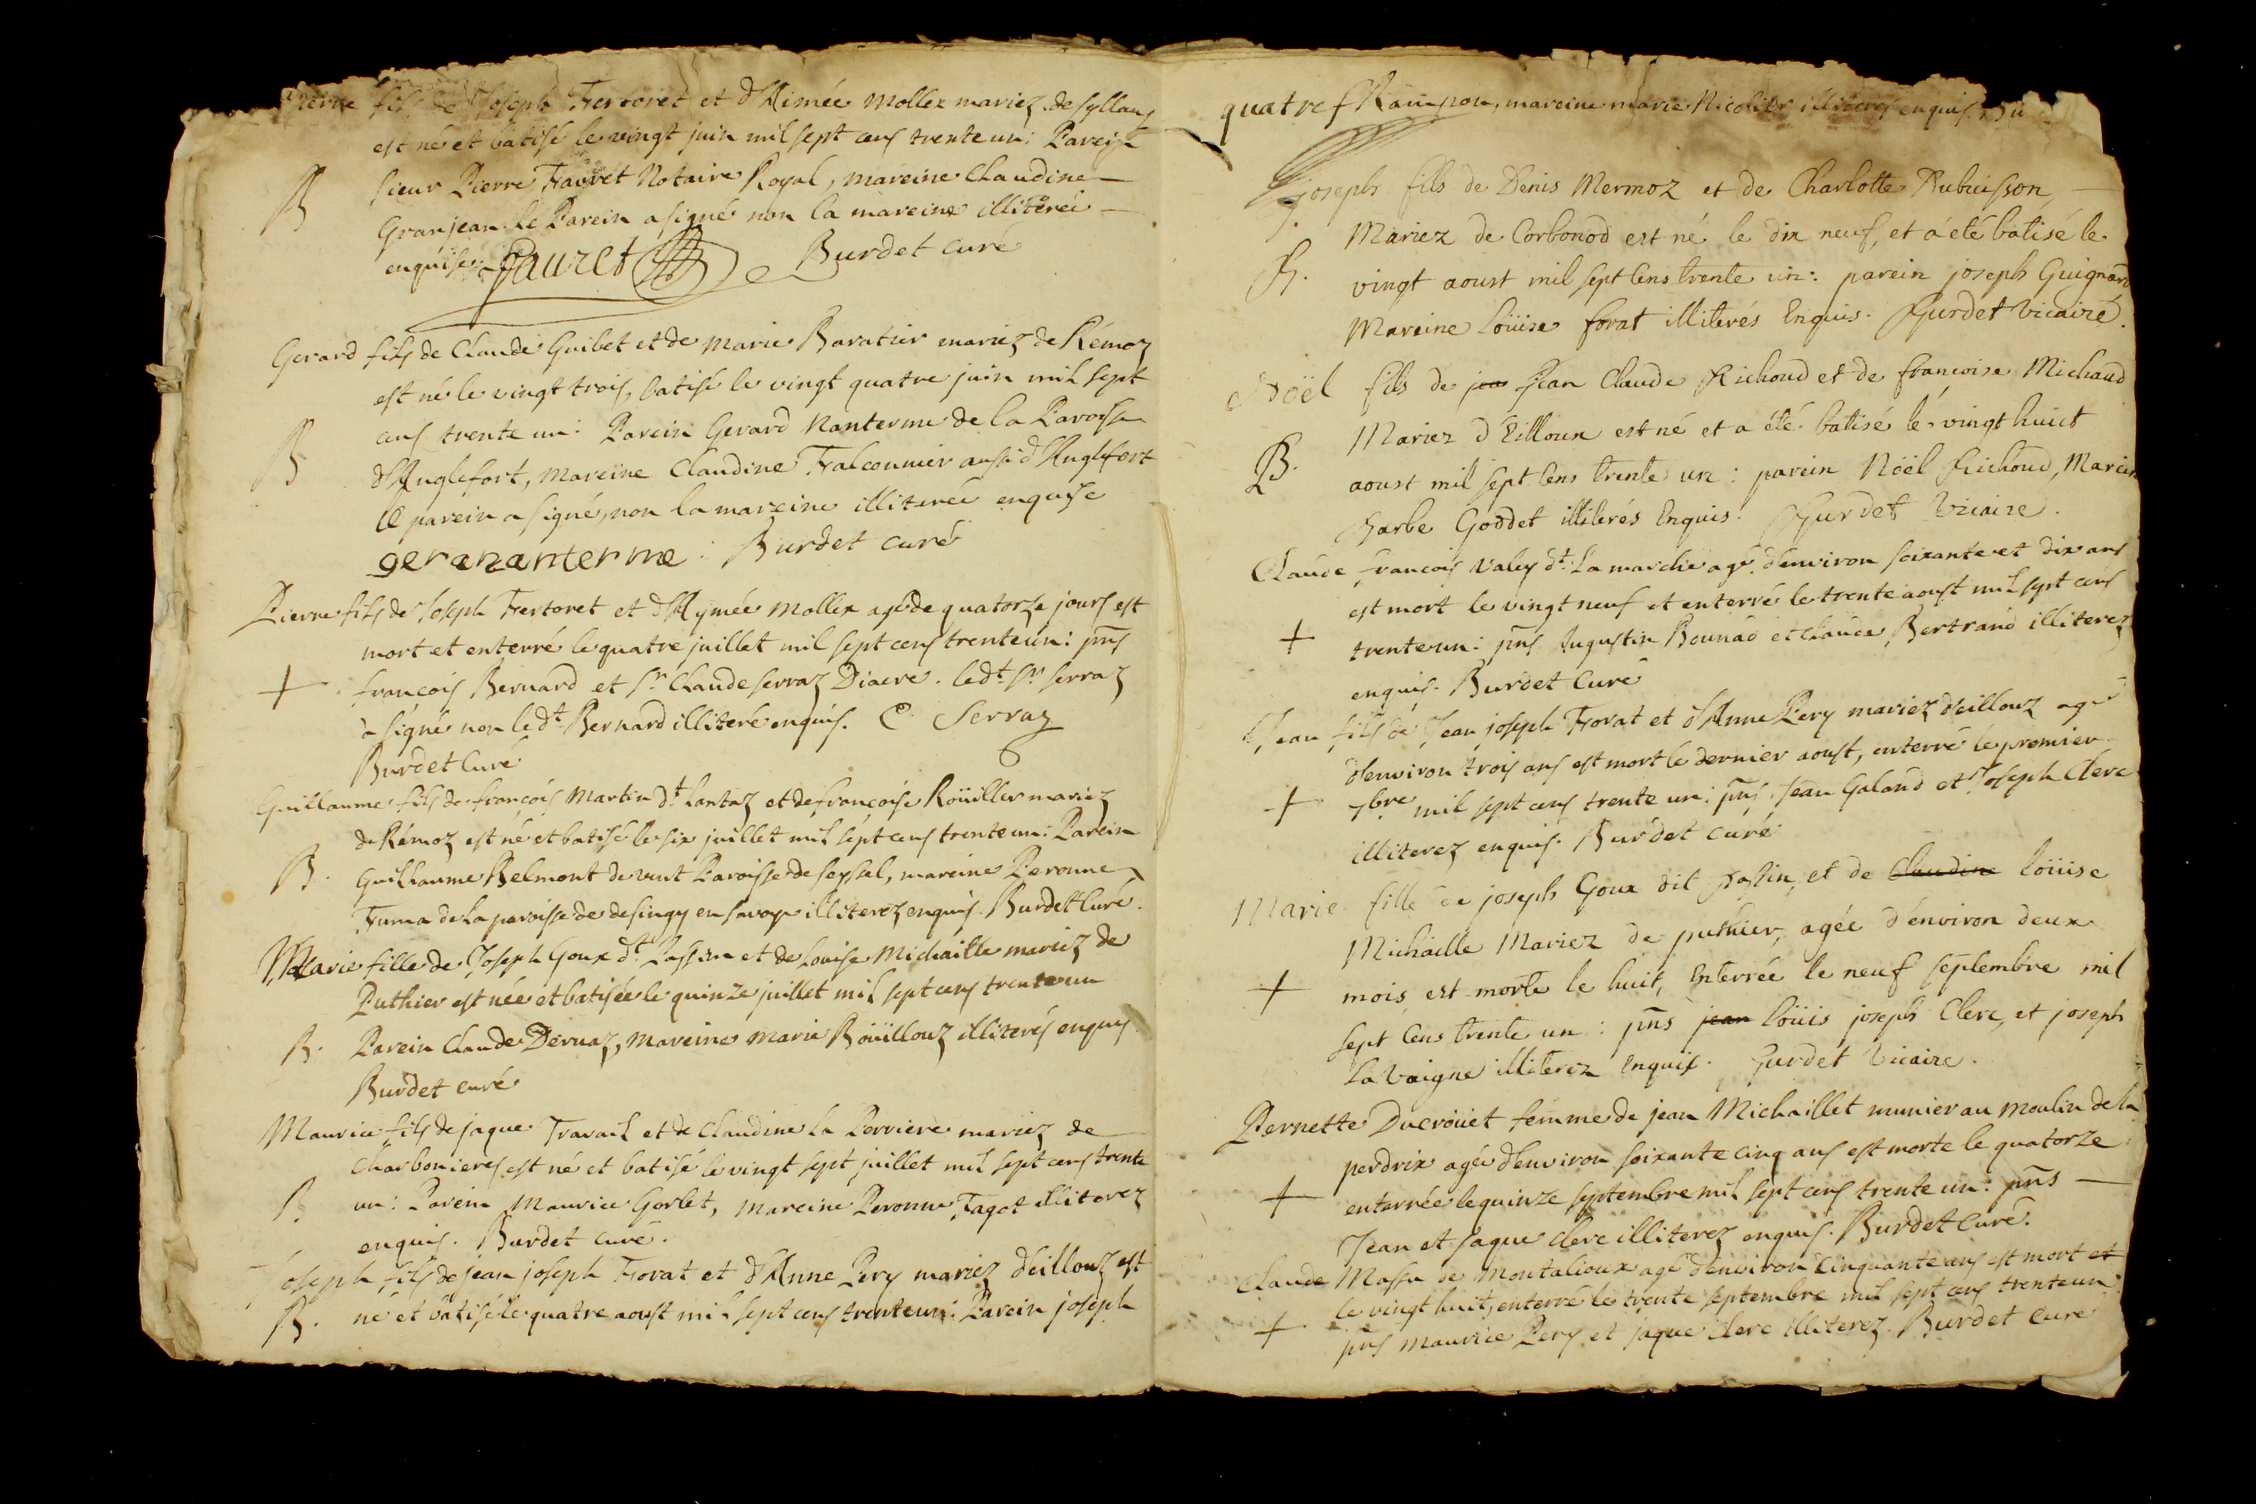 Pierre fils de Joseph Fertoret et d'Aimée Mollex mariez de Syllans
est né et batisé le vingt juin mil sept cens trente un: Parein
B sieur Pierre Fauret Notaire Royal, mareine Claudine
Granjean le Parein a signé non la mareine illiterée
enquise Fauret Burdet curé
Gerard fils de Claude Guibet et de Marie Baratier mariez de Rémoz
est né le vingt trois, batisé le vingt quatre juin mil sept
B cens trente un: Parein Gerard Nanterme de la Paroisse
d'Anglefort, mareine Claudine Falconnier aussi d'Anglefort
le parein a signé, non la mareine illiterée enquise
gerananterme: Burdet curé
Pierre fils de Joseph Fertoret et d'Aymée Mollex agé de quatorze jours est
mort et enterré le quatre juillet mil sept cens trente un: pns
+ françois Bernard et Sr Claude Serraz Diacre. ledt Sr Serraz
a signé non ledt Bernard illiteré enquis. C Serraz
Burdet Curé
Guillaume fils de françois Martin dt Lantaz et de françoise Roüiller mariez
de Rémoz est né et batisé le six juillet mil sept cens trente un: Parein
B. Guilhaume Belmont de vent Paroisse de seyssel, mareine Peronne
Fuma de la paroisse de desingy en savoye illiterez enquis. Burdet Curé.
Marie fille de Joseph Goux dt Passin et de Louise Michaille mariez de
Puthier est née et batisée le quinze juillet mil sept cens trente un
B. Parein Claude Dernaz, mareine Marie Boüillouz illiterés enquis.
Burdet curé
Maurice fils de jaque Travail et de Claudine La Perriere mariez de
Charbonieres est né et batisé le vingt sept juillet mil sept cens trente
B. un: Parein Maurice Gorlet, mareine Peronne Fagot illiterez
enquis. Burdet curé.
Joseph fils de jean joseph Forat et d'Anne Pery mariez d'eillouz est
B. né et batisé le quatre aoust mil sept cens trente un: Parein joseph
quatre f mareine marie Nicolier illiterés enquis.
joseph fils de Denis Mermoz et de Charlotte Dubuisson,
Mariez de Corbonod est né le dix neuf, et a été batisé le
B. vingt aoust mil sept Cens trente un: parein joseph Guignard
Mareine Loüise forat illiterés Enquis. Gurdet Vicaire.
Noël fils de jea Jean Claude Richoud et de francoise Michaud
Mariez d'Eilloux est né et a été batisé le vingt huict
B. aoust mil sept Cens trente un: parein Nöël Richoud, Marein
Barbe Goddet illiterés Enquis. Gurdet Vicaire.
Claude françois Valey dt. La marche agé d'environ soixante et dix ans
est mort le vingt neuf et enterré le trente aoust mil sept cens
+ trente un: pns Augustin Bounad et Claude Bertrand illiterez
enquis. Burdet Curé
Jean fils de Jean joseph Forat et d'Anne Pery mariez d'eillouz agé
d'environ trois ans est mort le dernier aoust, enterré le premier
+ 7bre mil sept cens trente un: pns. Jean Galand et Joseph Clerc
illiterez enquis. Burdet curé
Marie fille de joseph Goux dit Passin, et de Claudine Loüise
Michaille Mariez de puthier, agée d'environ deux
+ mois est morte le huit, Enterrée le neuf septembre mil
sept Cens trente un: pns jean Loüis joseph Clerc, et joseph
La Vaigne illiterez Enquis. Gurdet Vicaire.
Pernette Ducroüet femme de jean Michaillet munier au moulin de la
perdrix agée d'environ soixante cinq ans est morte le quatorze
+ enterrée le quinze septembre mil sept cens trente un: pns
Jean et jaque Clerc illiterez enquis. Burdet Curé.
Claude Massu de Montalioux agé d'environ Cinquante ans est mort et
le vingt huit, enterré le trente septembre mil sept cens trente un:
+ pns Maurice Pery et jaque Clerc illiterez. Burdet Curé